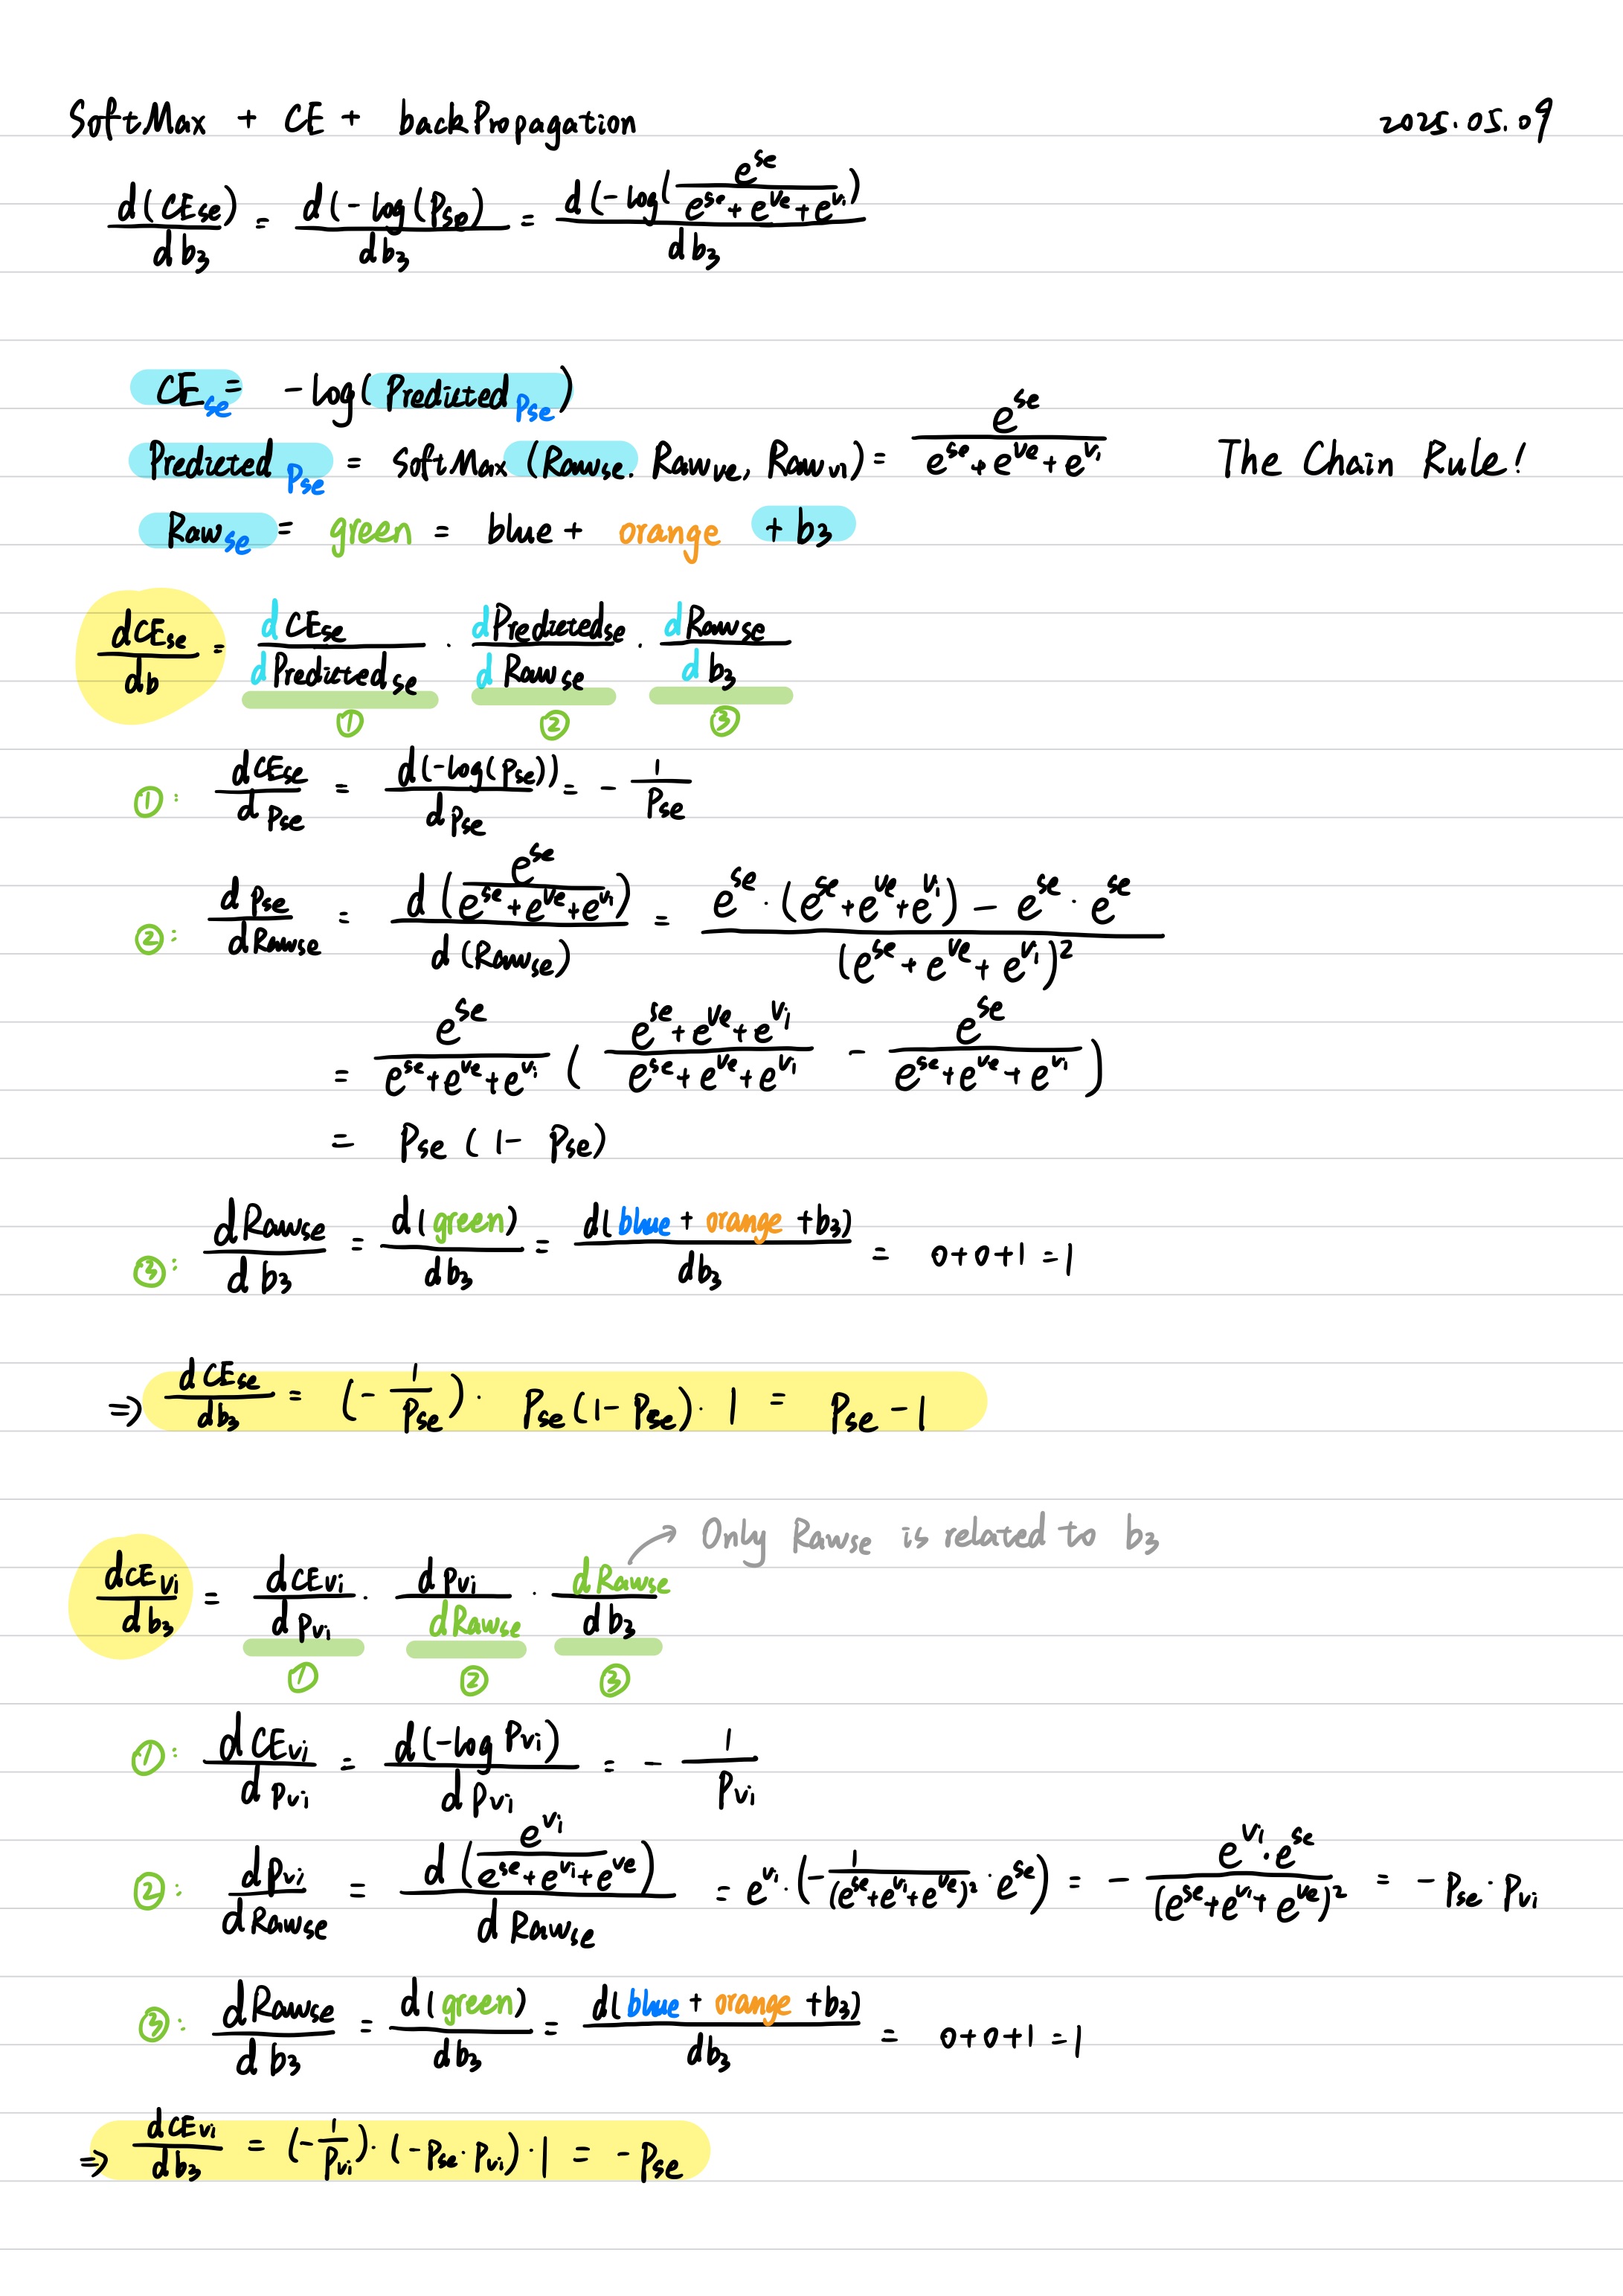 SoftMax + CE + backPropagation 2025.05.09
d(CEse)/db₃ = d(-log(Pse)/db₃ = d(-log(e^se/(e^se+e^ve+e^vi))/db₃
CEse = -log(Predicted Pse)
Predicted Pse = SoftMax (Rawse. Rawve, Rawvi) = e^se/(e^se+e^ve+e^vi) The Chain Rule!
Rawse = green = blue + orange + b₃
dCEse/db = dCEse/dPredictedse · dPredictedse/dRawse · dRawse/db₃
① ② ③
①: dCEse/dPse = d(-log(Pse))/dPse = - 1/Pse
②: dPse/dRawse = d(e^se/(e^se+e^ve+e^vi))/d(Rawse) = (e^se · (e^se+e^ve+e^vi) - e^se · e^se)/(e^se+e^ve+e^vi)²
= e^se/(e^se+e^ve+e^vi) ((e^se+e^ve+e^vi)/(e^se+e^ve+e^vi) - e^se/(e^se+e^ve+e^vi))
= Pse (1- Pse)
③: dRawse/db₃ = d(green)/db₃ = d(blue + orange +b₃)/db₃ = 0+0+1 =1
⇒ dCEse/db₃ = (- 1/Pse) · Pse(1-Pse) · 1 = Pse -1
Only Rawse is related to b₃
dCEvi/db₃ = dCEvi/dPvi · dPvi/dRawse · dRawse/db₃
① ② ③
①: dCEvi/dPvi = d(-log Pvi)/dPvi = - 1/Pvi
②: dPvi/dRawse = d(e^vi/(e^se+e^vi+e^ve))/dRawse = e^vi · (- 1/(e^se+e^vi+e^ve)² · e^se) = - e^vi · e^se/(e^se+e^vi+e^ve)² = - Pse · Pvi
③: dRawse/db₃ = d(green)/db₃ = d(blue + orange +b₃)/db₃ = 0+0+1 =1
⇒ dCEvi/db₃ = (- 1/Pvi) · (-Pse · Pvi) · 1 = - Pse